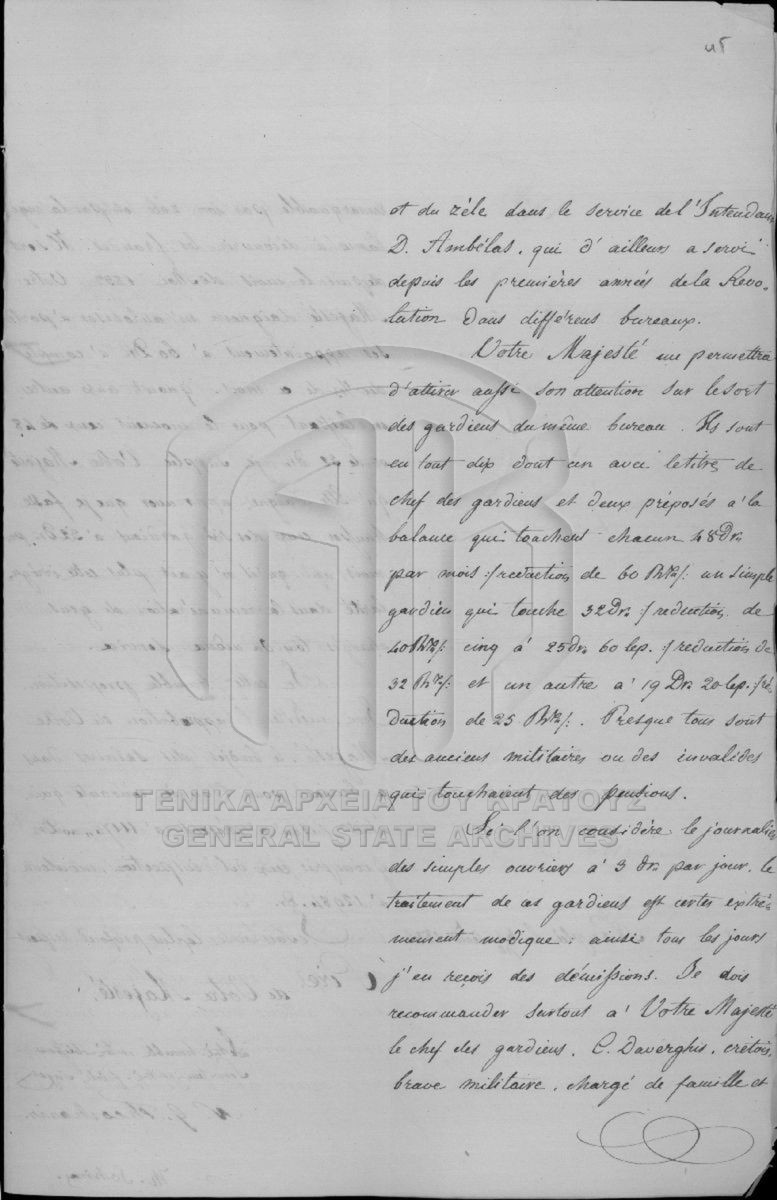 45
et du zéle dans le service de l'Intendan
D. Ambélas, qui d'ailleurs a servi
depuis les premières années de la Revo-
lution dans différens bureaux.
Votre Majesté me permettra
d'attirer aussi son attention sur le sort
des gardiens du même bureau. Ils sont
en tout dix dont un avec le titre de
chef des gardiens et deux préposés à la
balance qui touchent chacun 48 Dr.
par mois :/ reduction de 60 Phx/: un simple
gardien qui touche 32 Dr. :/ reduction de
40 Phx/: cinq à 25 Dr. 60 lep. :/ reduction de
32 Phx/: et un autre à 19 Dr. 20 lep. :/ ré-
duction de 25 Phx/:. Presque tous sont
des anciens militaires ou des invalides
qui touchaient des pensions.
ΓΕΝΙΚΑ ΑΡΧΕΙΑ ΤΟΥ ΚΡΑΤΟΥΣ
GENERAL STATE ARCHIVES
Si l'on considère le journalier
des simples ouvriers à 3 dr. par jour, le
traitement de ces gardiens est certes extrê-
mement modique : ainsi tous les jours
j'en reçois des démissions. Je dois
recommander surtout à Votre Majesté
le chef des gardiens, C. Daverghis, crétois,
brave militaire, chargé de famille et